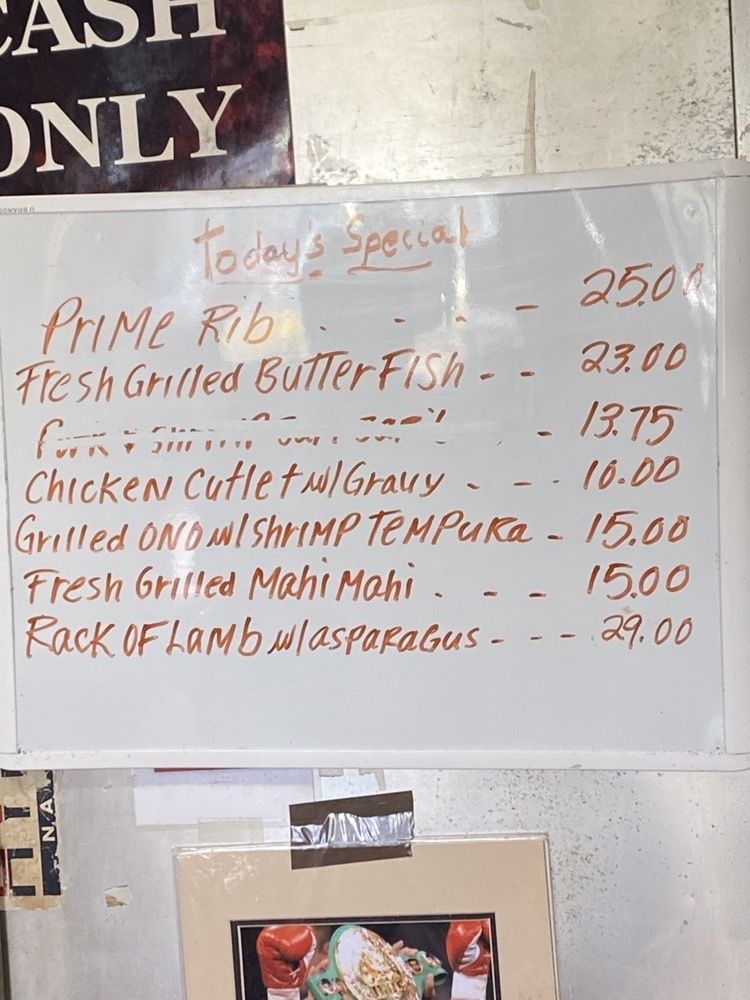 CASH
ONLY
Today's Special
PRIME Rib . - - - 25.00
Fresh Grilled ButterFISh - - 23.00
- 13.75
ChickeN Cutlet w/ Gravy - - - 10.00
Grilled ONO w/ ShrIMP TEMPuRa - 15.00
Fresh Grilled Mahi Mahi . - - 15.00
RacK OF LaMb w/ aspaRaGus - - - 29.00